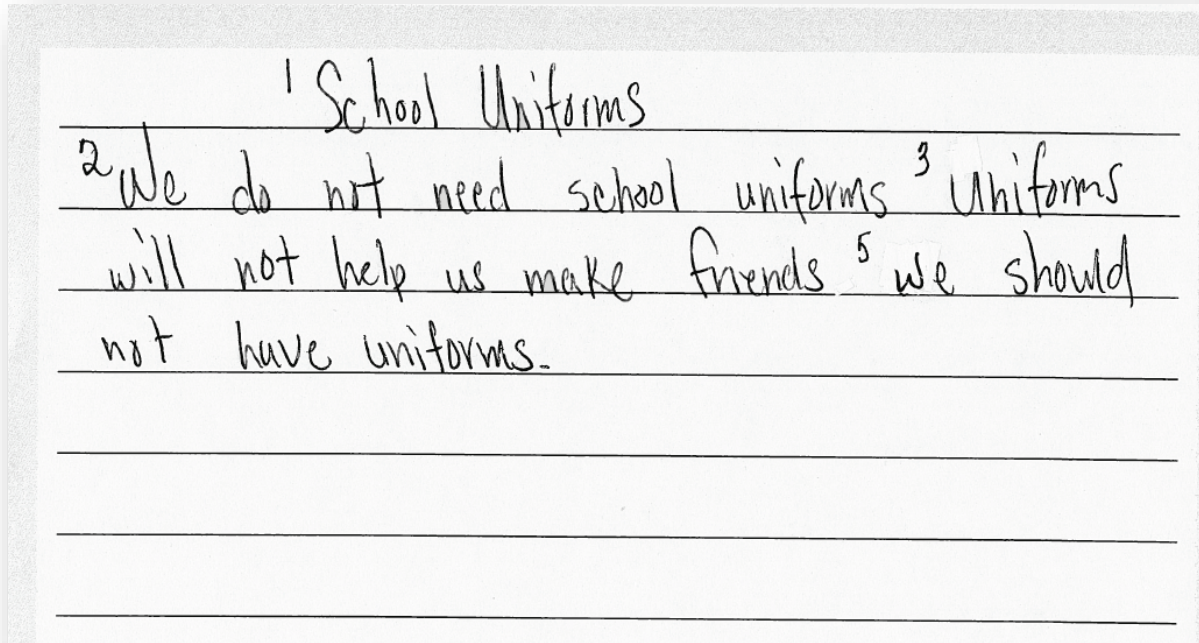 1 School Uniforms
2 We do not need school uniforms 3 Uniforms
will not help us make friends 5 we should
not have uniforms.